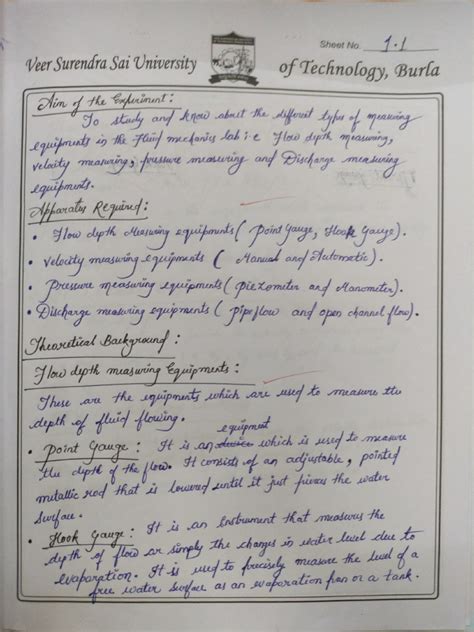 Sheet No. 1.1
Veer Surendra Sai University of Technology, Burla
Aim of the Experiment:
To study and know about the different types of measuring
equipments in the Fluid mechanics lab i.e Flow depth measuring,
velocity measuring, pressure measuring and Discharge measuring
equipments.
Apparatus Required:
• Flow depth Measuring equipments (Point Gauge, Hook Gauge).
• Velocity measuring equipments (Manual and Automatic).
• Pressure measuring equipments (Piezometer and Manometer).
• Discharge measuring equipments (pipeflow and open channel flow).
Theoretical Background:
Flow depth measuring Equipments:
These are the equipments which are used to measure the
depth of fluid flowing.
equipment
• Point Gauge: It is an device which is used to measure
the depth of the flow. It consists of an adjustable, pointed
metallic rod that is lowered until it just the water
surface.
• Hook Gauge: It is an instrument that measures the
depth of flow or simply the changes in water level due to
evaporation. It is used to precisely measure the level of a
free water surface as an evaporation pan or a tank.